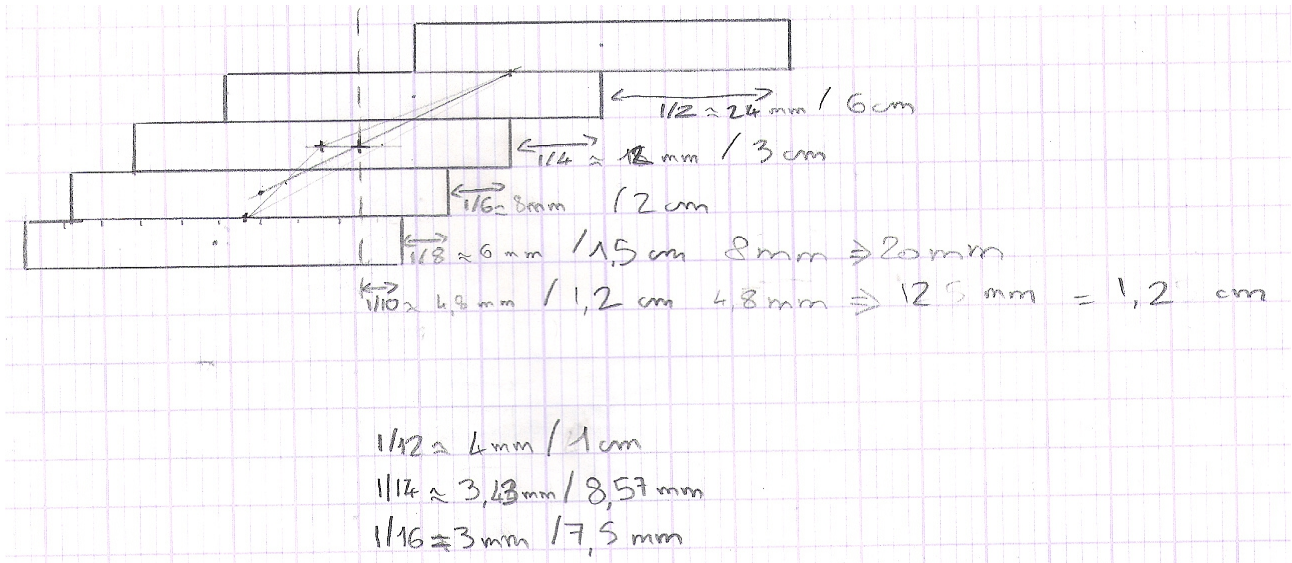 1/2 ≈ 24 mm / 6 cm
1/4 ≈ 12 mm / 3 cm
1/6 ≈ 8mm / 2 cm
1/8 ≈ 6 mm / 1,5 cm 8mm ⇒ 20mm
1/10 ≈ 4,8 mm / 1,2 cm 4,8mm ⇒ 12 mm = 1,2 cm
1/12 ≈ 4mm / 1cm
1/14 ≈ 3,43mm / 8,57 mm
1/16 ≈ 3mm / 7,5 mm